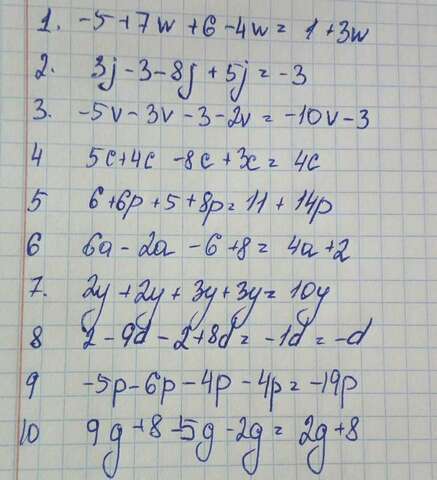 1. -5+7w+6-4w= 1+3w
2. 3j-3-8j+5j=-3
3. -5v-3v-3-2v=-10v-3
4 5c+4c-8c+3c=4c
5 6+6p+5+8p=11+14p
6 6a-2a-6+8=4a+2
7. 2y+2y+3y+3y=10y
8 2-9d-2+8d=-1d=-d
9 -5p-6p-4p-4p=-19p
10 9g+8-5g-2g=2g+8